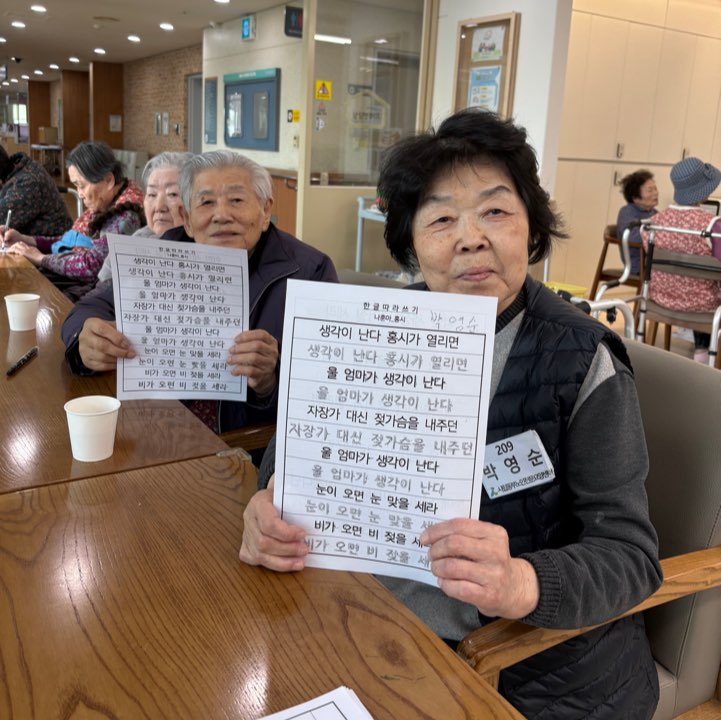 한글따라쓰기
나훈아_홍시
박영수
생각이 난다 홍시가 열리면
생각이 난다 홍시가 열리면
울 엄마가 생각이 난다
울 엄마가 생각이 난다
자장가 대신 젖가슴을 내주던
자장가 대신 젖가슴을 내주던
울 엄마가 생각이 난다
울 엄마가 생각이 난다
눈이 오면 눈 맞을 세라
눈이 오면 눈 맞을 세라
비가 오면 비 젖을 세라
비가 오면 비 젖을 세라
209
박영순
한글따라쓰기
나훈아_홍시
생각이 난다 홍시가 열리면
생각이 난다 홍시가 열리면
울 엄마가 생각이 난다
울 엄마가 생각이 난다
자장가 대신 젖가슴을 내주던
자장가 대신 젖가슴을 내주던
울 엄마가 생각이 난다
울 엄마가 생각이 난다
눈이 오면 눈 맞을 세라
눈이 오면 눈 맞을 세라
비가 오면 비 젖을 세라
비가 오면 비 젖을 세라